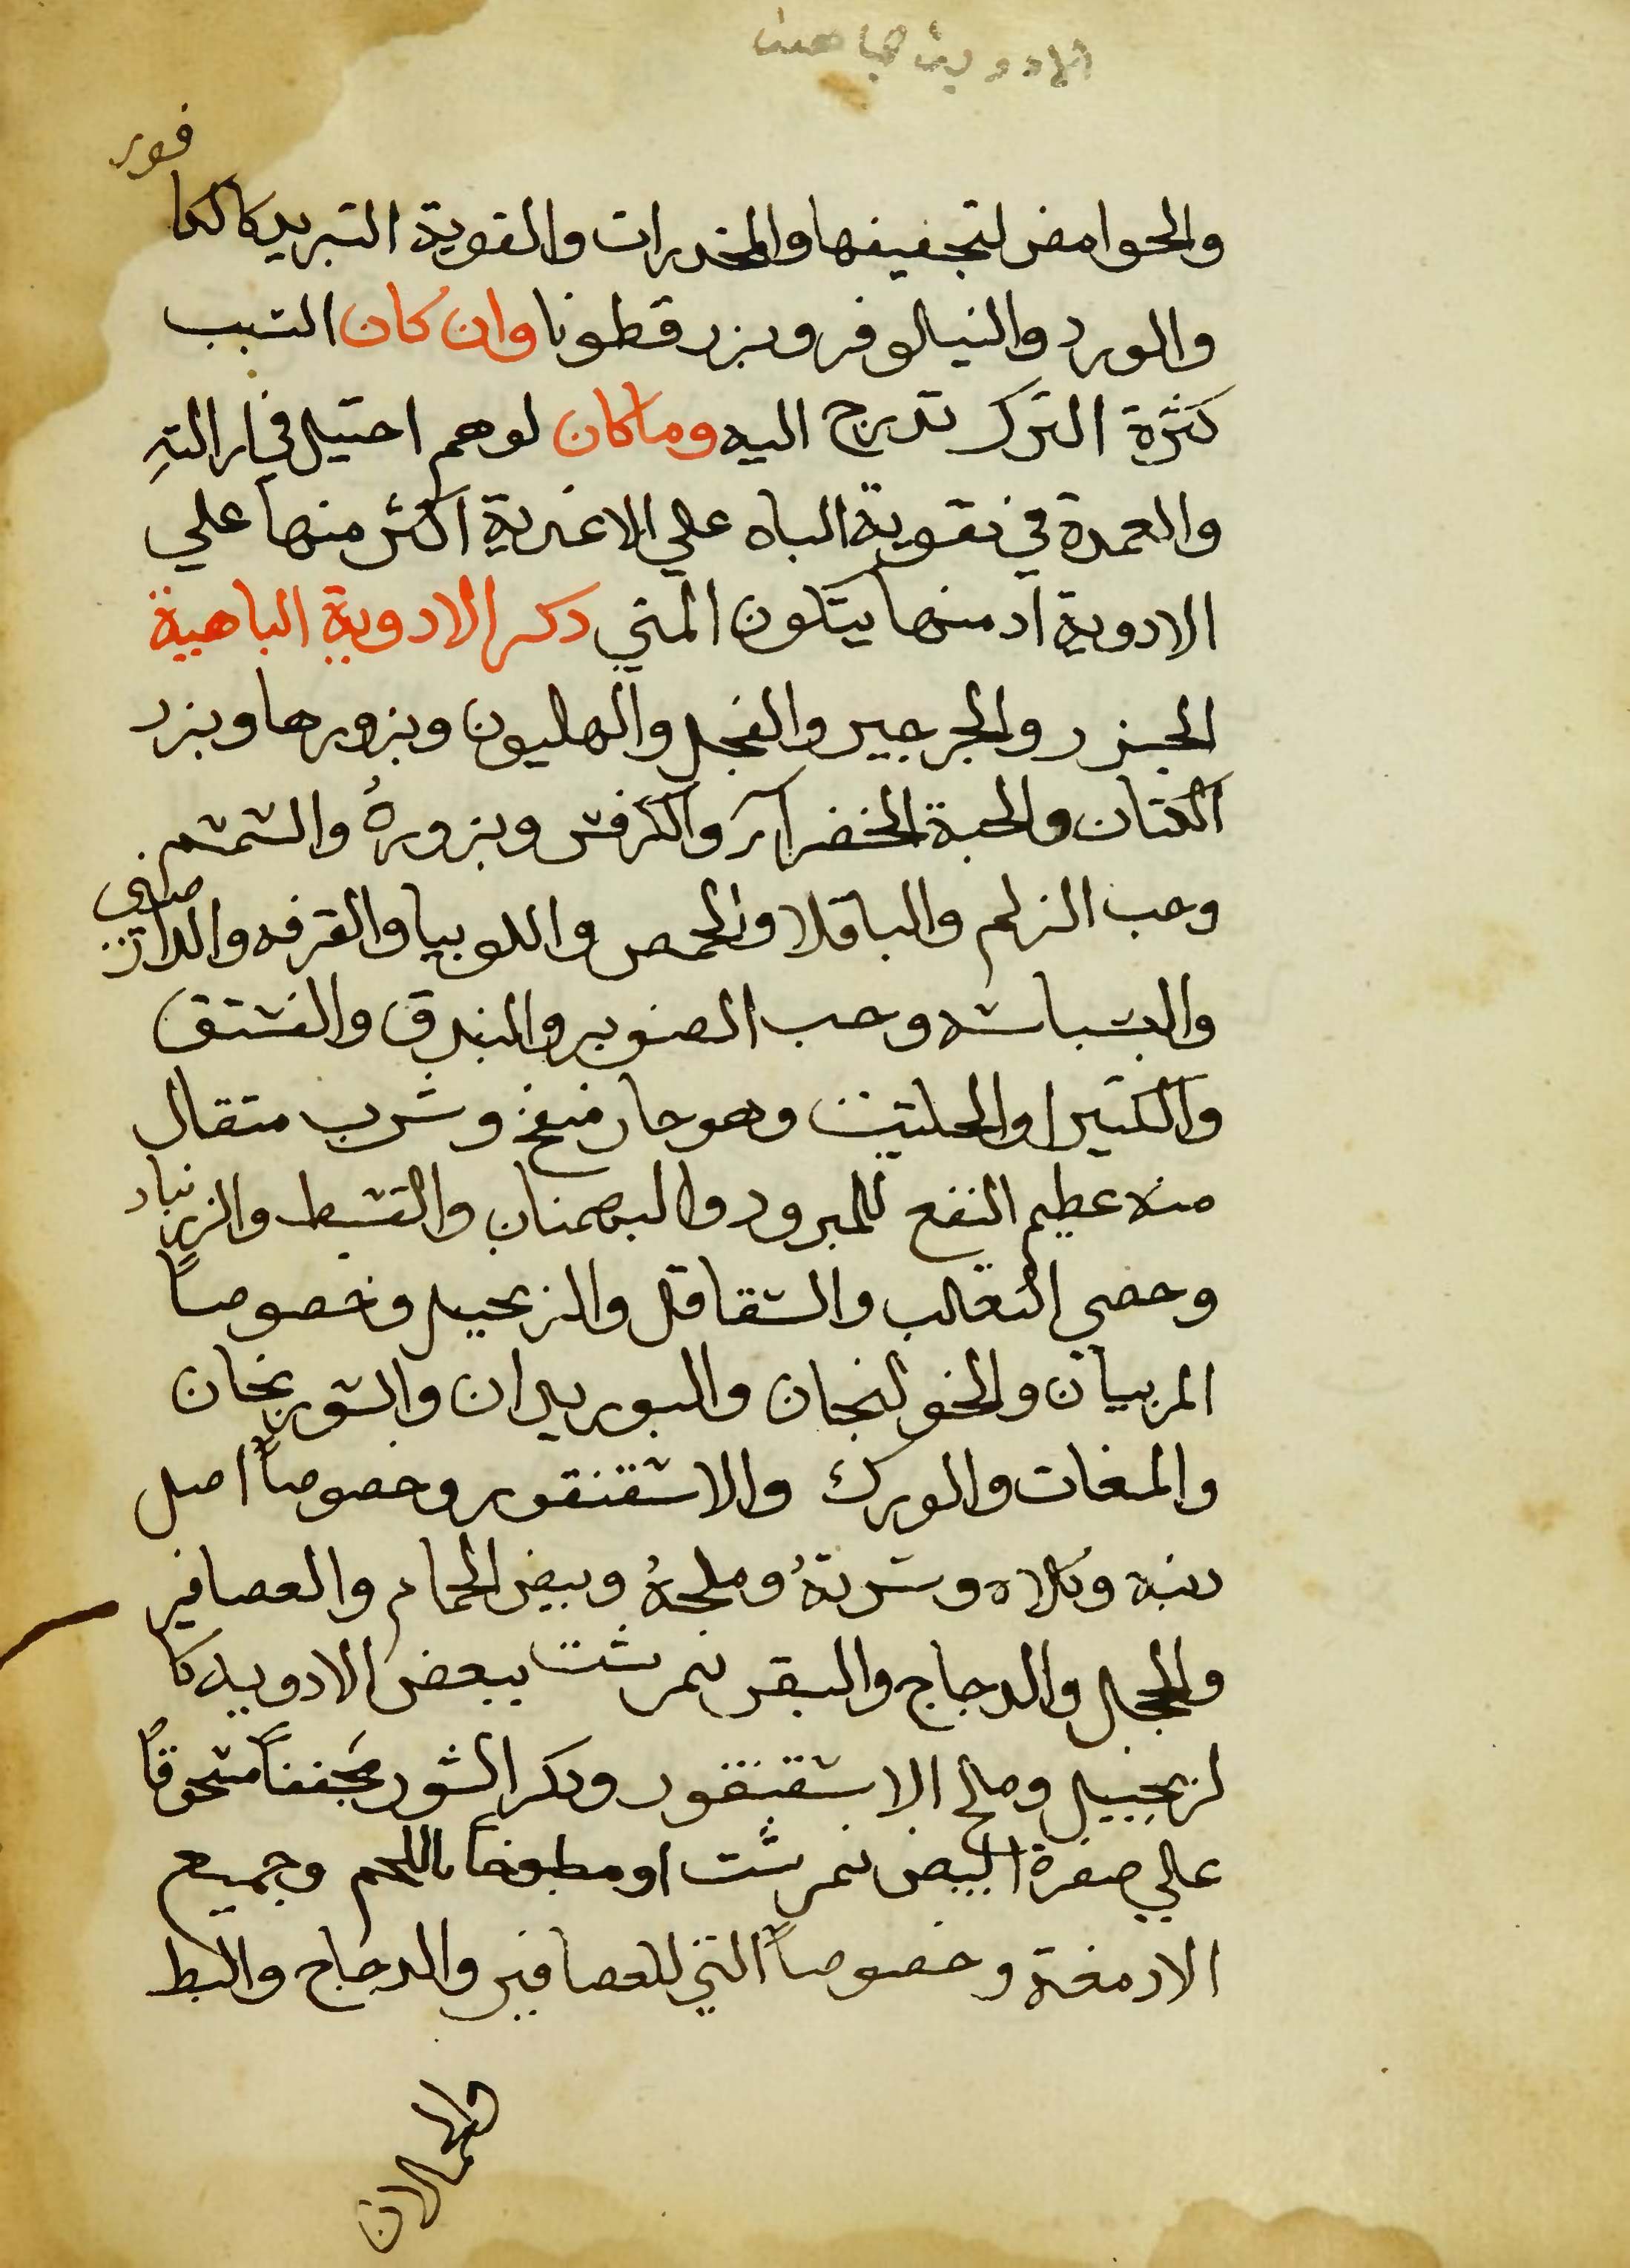 الادوية الباهية
والحوامض لتجفيفها والمخدرات والقوية التبريد كالكافور
والورد والنيالوفر وبزر قطونا وان كان السبب
كثرة الترك تدرج اليه وما كان لوهم احتيل في ازالته
والعمدة في تقوية الباه علي الاغدية اكثر منها علي
الادوية اد منها يتكون المني دكر الادوية الباهية
الجزر والجرجير والفجل والهليون وبزورها وبزر
الكتان والحبة الخضرآء والكرفس وبزوره والسمسم
وحب الزلم والباقلا والحمص واللوبيا والقرفه والدارصيني
والبسباسه وحب الصنوبر والبندق والفستق
والكثيرا والحلتيت وهو حار منفخ وشرب متقال
منه عظيم النفع للمبرود والبهمنان والقسط والزرنباد
وخصي الثعالب والشقاقل والزنجبيل وخصوصاً
المربيان والخولنجان والبوريدان والسورنجان
والمغات والورك والاسقنقور وخصوصاً اصل
دنبه وكلاه وسرتهُ وملحهُ وبيض الحمام والعصافير
والحجل والدجاج والبقر نمرشت ببعض الادويه كا
لزنجبيل وملح الاسقنقور ودكر الثور مجففاً مسحوقاً
علي صفرة البيض نمرشت او مطبوخاً باللحم وجميع
الادمغة وخصوصاً التي للعصافير والدجاج والبط
والحملان